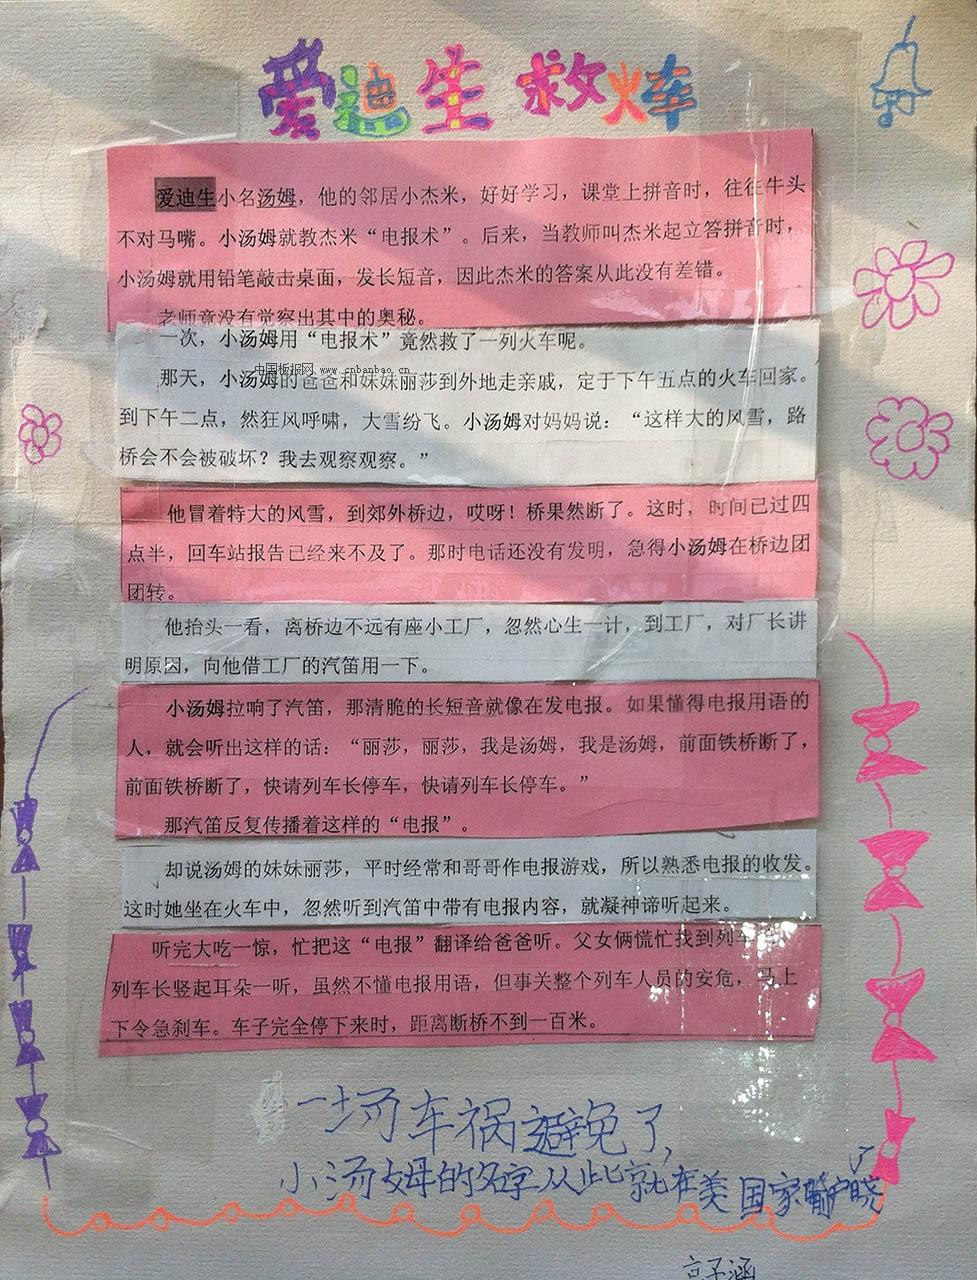 爱迪生 救火车
爱迪生小名汤姆，他的邻居小杰米，好好学习，课堂上拼音时，往往牛头
不对马嘴。小汤姆就教杰米“电报术”。后来，当教师叫杰米起立答拼音时，
小汤姆就用铅笔敲击桌面，发长短音，因此杰米的答案从此没有差错。
老师竟没有觉察出其中的奥秘。
一次，小汤姆用“电报术”竟然救了一列火车呢。
中国板报网 www.cnbanbao.cn
那天，小汤姆的爸爸和妹妹丽莎到外地走亲戚，定于下午五点的火车回家。
到下午二点，然狂风呼啸，大雪纷飞。小汤姆对妈妈说：“这样大的风雪，路
桥会不会被破坏？我去观察观察。”
他冒着特大的风雪，到郊外桥边，哎呀！桥果然断了。这时，时间已过四
点半，回车站报告已经来不及了。那时电话还没有发明，急得小汤姆在桥边团
团转。
他抬头一看，离桥边不远有座小工厂，忽然心生一计，到工厂，对厂长讲
明原因，向他借工厂的汽笛用一下。
小汤姆拉响了汽笛，那清脆的长短音就像在发电报。如果懂得电报用语的
人，就会听出这样的话：“丽莎，丽莎，我是汤姆，我是汤姆，前面铁桥断了，
前面铁桥断了，快请列车长停车，快请列车长停车。”
那汽笛反复传播着这样的“电报”。
却说汤姆的妹妹丽莎，平时经常和哥哥作电报游戏，所以熟悉电报的收发。
这时她坐在火车中，忽然听到汽笛中带有电报内容，就凝神谛听起来。
听完大吃一惊，忙把这“电报”翻译给爸爸听。父女俩慌忙找到列车
列车长竖起耳朵一听，虽然不懂电报用语，但事关整个列车人员的安危，马上
下令急刹车。车子完全停下来时，距离断桥不到一百米。
一场车祸避免了，
小汤姆的名字从此就在美国家喻户晓
子涵